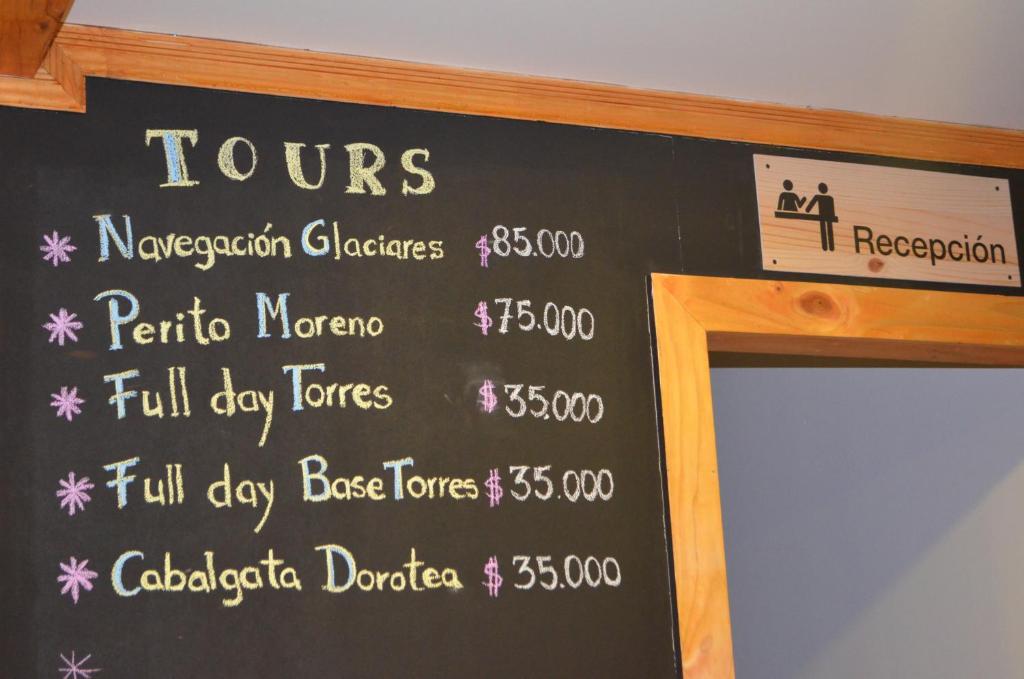 TOURS
* Navegación Glaciares $85.000
* Perito Moreno $75.000
* Full day Torres $35.000
* Full day Base Torres $35.000
* Cabalgata Dorotea $35.000
*
Recepción